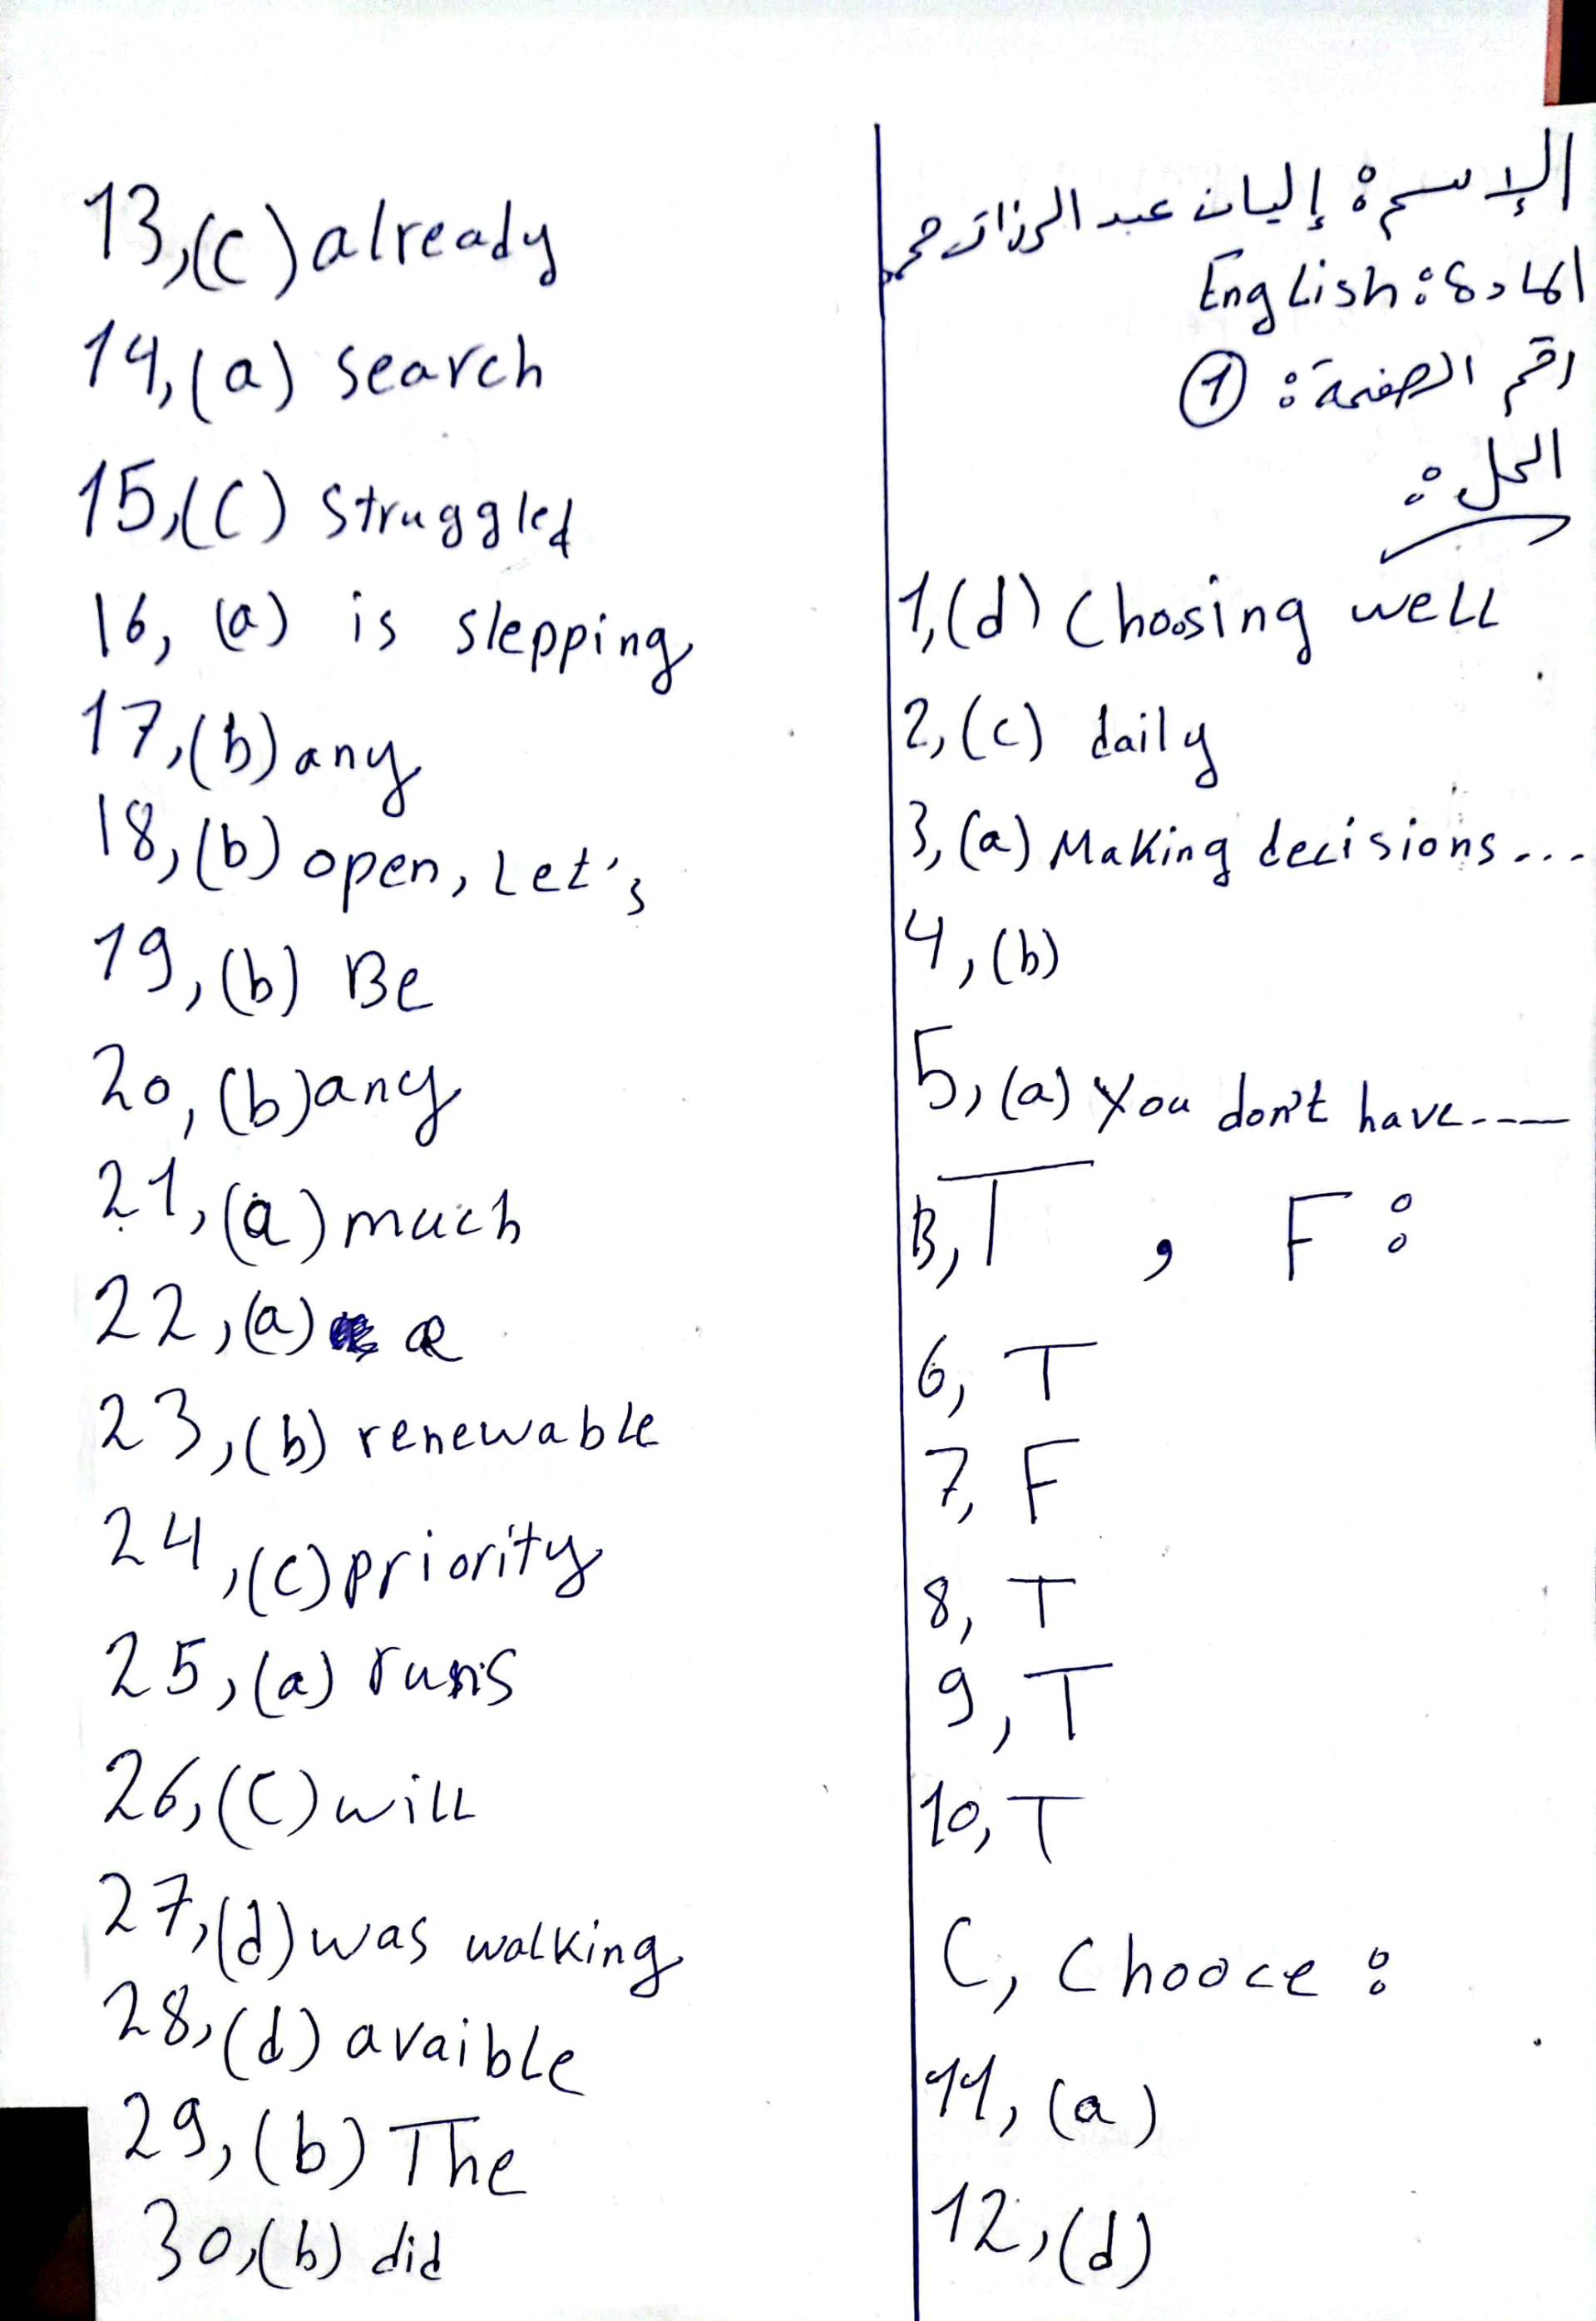 الإسم: إليان عبد الرزاق رحمو
المادة: English
رقم الصفحة: 1
الحل:
1,(d) Choosing well
2,(c) daily
3,(a) Making decisions...
4,(b)
5,(a) You don't have----
B, T , F:
6, T
7, F
8, T
9, T
10, T
C, Chooce:
11, (a)
12, (d)
13,(c) already
14,(a) search
15,(C) struggled
16, (a) is slepping
17,(b) any
18,(b) open, Let's
19,(b) Be
20,(b) any
21,(a) much
22,(a) a
23,(b) renewable
24,(c) priority
25,(a) runs
26,(C) will
27,(d) was walking
28,(d) avaible
29,(b) The
30,(b) did